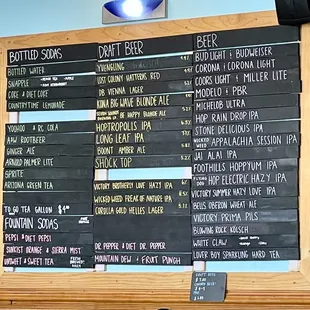 BOTTLED SODAS
BOTTLED WATER
SNAPPLE
COKE & DIET COKE
COUNTRYTIME LEMONADE
YOOHOO & RC COLA
A&W ROOTBEER
GINGER ALE
ARNOLD PALMER LITE
SPRITE
ARIZONA GREEN TEA
TO GO TEA GALLON $4
FOUNTAIN SODAS
PEPSI & DIET PEPSI
SUNKIST ORANGE & SIERRA MIST
UNSWEET & SWEET TEA
DRAFT BEER
YUENGLING
LOST COLONY HATTERAS RED
DB VIENNA LAGER
KONA BIG WAVE BLONDE ALE
SO HAPPY BLONDE ALE
HOPTROPOLIS IPA
LONG LEAF IPA
BOONT AMBER ALE
SHOCK TOP
VICTORY BROTHERLY LOVE HAZY IPA
WICKED WEED FREAK OF NATURE IPA
COROLLA GOLD HELLES LAGER
DR. PEPPER & DIET DR. PEPPER
MOUNTAIN DEW & FRUIT PUNCH
BEER
BUD LIGHT & BUDWEISER
CORONA & CORONA LIGHT
COORS LIGHT & MILLER LITE
MODELO & PBR
MICHELOB ULTRA
HOP RAIN DROP IPA
STONE DELICIOUS IPA
WICKED WEED APPALACHIA SESSION IPA
JAI ALAI IPA
FOOTHILLS HOPPYUM IPA
FLYING DOG HOP ELECTRIC HAZY IPA
VICTORY SUMMER HAZY LOVE IPA
BELLS OBERON WHEAT ALE
VICTORY PRIMA PILS
BLOWING ROCK KÖLSCH
WHITE CLAW
OVER BOY SPARKLING HARD TEA
DRAFT BEER